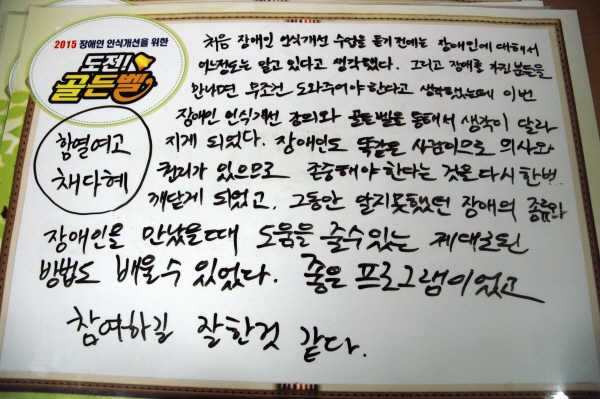 2015 장애인 인식개선을 위한
도전!
골든벨
함열여고
채다혜
처음 장애인 인식개선 수업을 듣기 전에는 장애인에 대해서
어느정도는 알고 있다고 생각했다. 그리고 장애를 가진분들을
만나면 무조건 도와주어야 한다고 생각했는데 이번
장애인 인식개선 강의와 골든벨을 통해서 생각이 달라
지게 되었다. 장애인도 똑같은 사람이므로 의사와
권리가 있으므로 존중해야 한다는 것을 다시 한번
깨닫게 되었고, 그동안 알지못했던 장애의 종류와
장애인을 만났을때 도움을 줄수있는 제대로된
방법도 배울수 있었다. 좋은 프로그램이었고
참여하길 잘한것 같다.